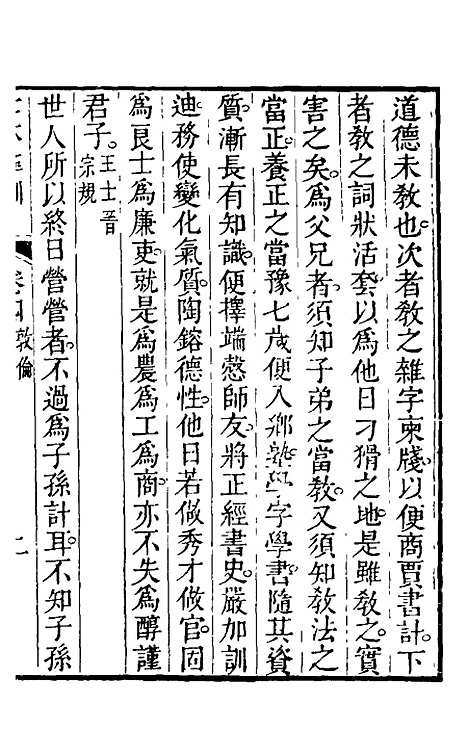 道德未敎也。次者敎之雜字柬牋。以便商賈書計。下
者敎之詞狀活套以爲他日刁猾之地。是雖敎之。實
害之矣。爲父兄者。須知子弟之當敎。又須知敎法之
當正。養正之當豫七歲便入鄉塾學字學書隨其資
質。漸長有知識。便擇端慤師友。將正經書史。嚴加訓
迪。務使變化氣質。陶鎔德性。他日若做秀才做官。固
爲良士爲廉吏。就是爲農爲工爲商。亦不失爲醇謹
君子。王士晉宗規
世人所以終日營營者。不過爲子孫計耳。不知子孫
卷四 敦倫